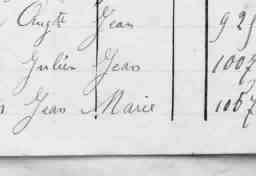 Augte Jean 925
Julien Jean 1007
Jean Marie 1057